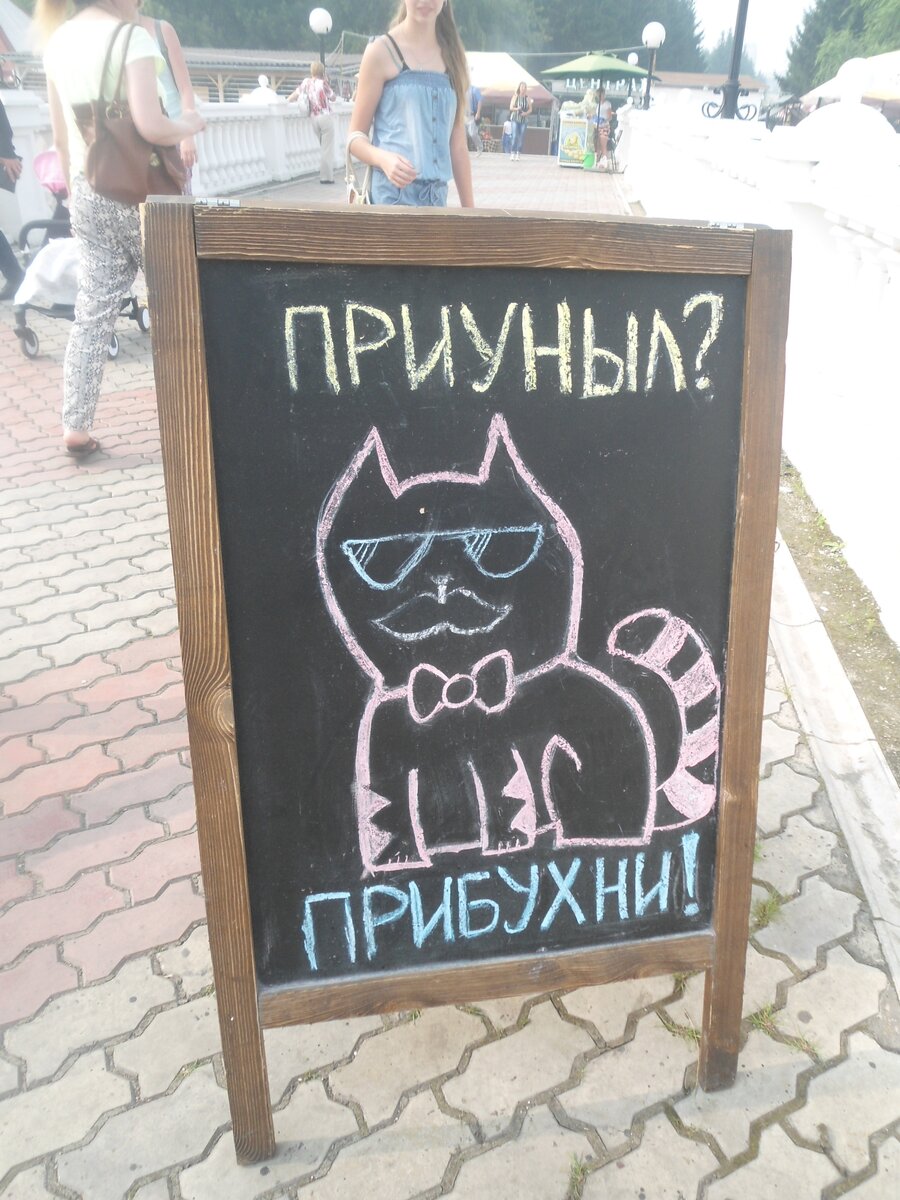 ПРИУНЫЛ?
ПРИБУХНИ!